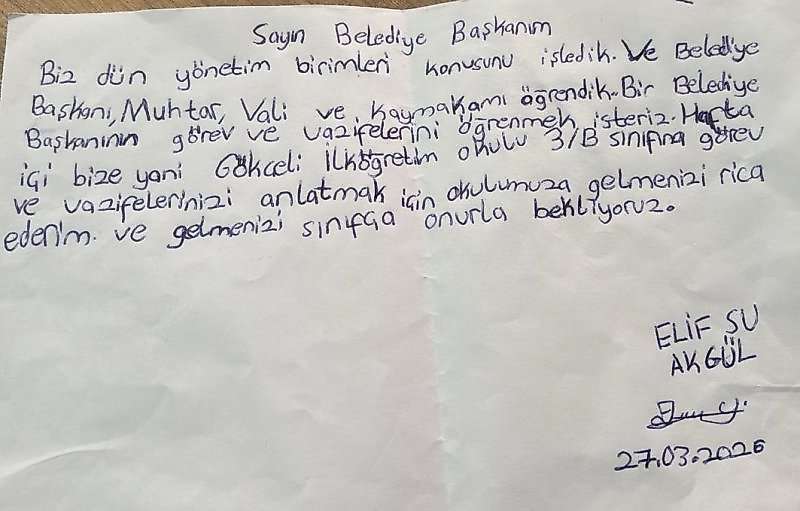 Sayın Belediye Başkanım
Biz dün yönetim birimleri konusunu işledik. Ve Belediye
Başkanı, Muhtar, Vali ve kaymakamı öğrendik. Bir Belediye
Başkanının görev ve vazifelerini öğrenmek isteriz. Hafta
içi bize yani Gökçeli İlköğretim okulu 3/B sınıfına görev
ve vazifelerinizi anlatmak için okulumuza gelmenizi rica
ederim. ve gelmenizi sınıfça onurla bekliyoruz.
ELİF SU
AKGÜL
27.03.2026